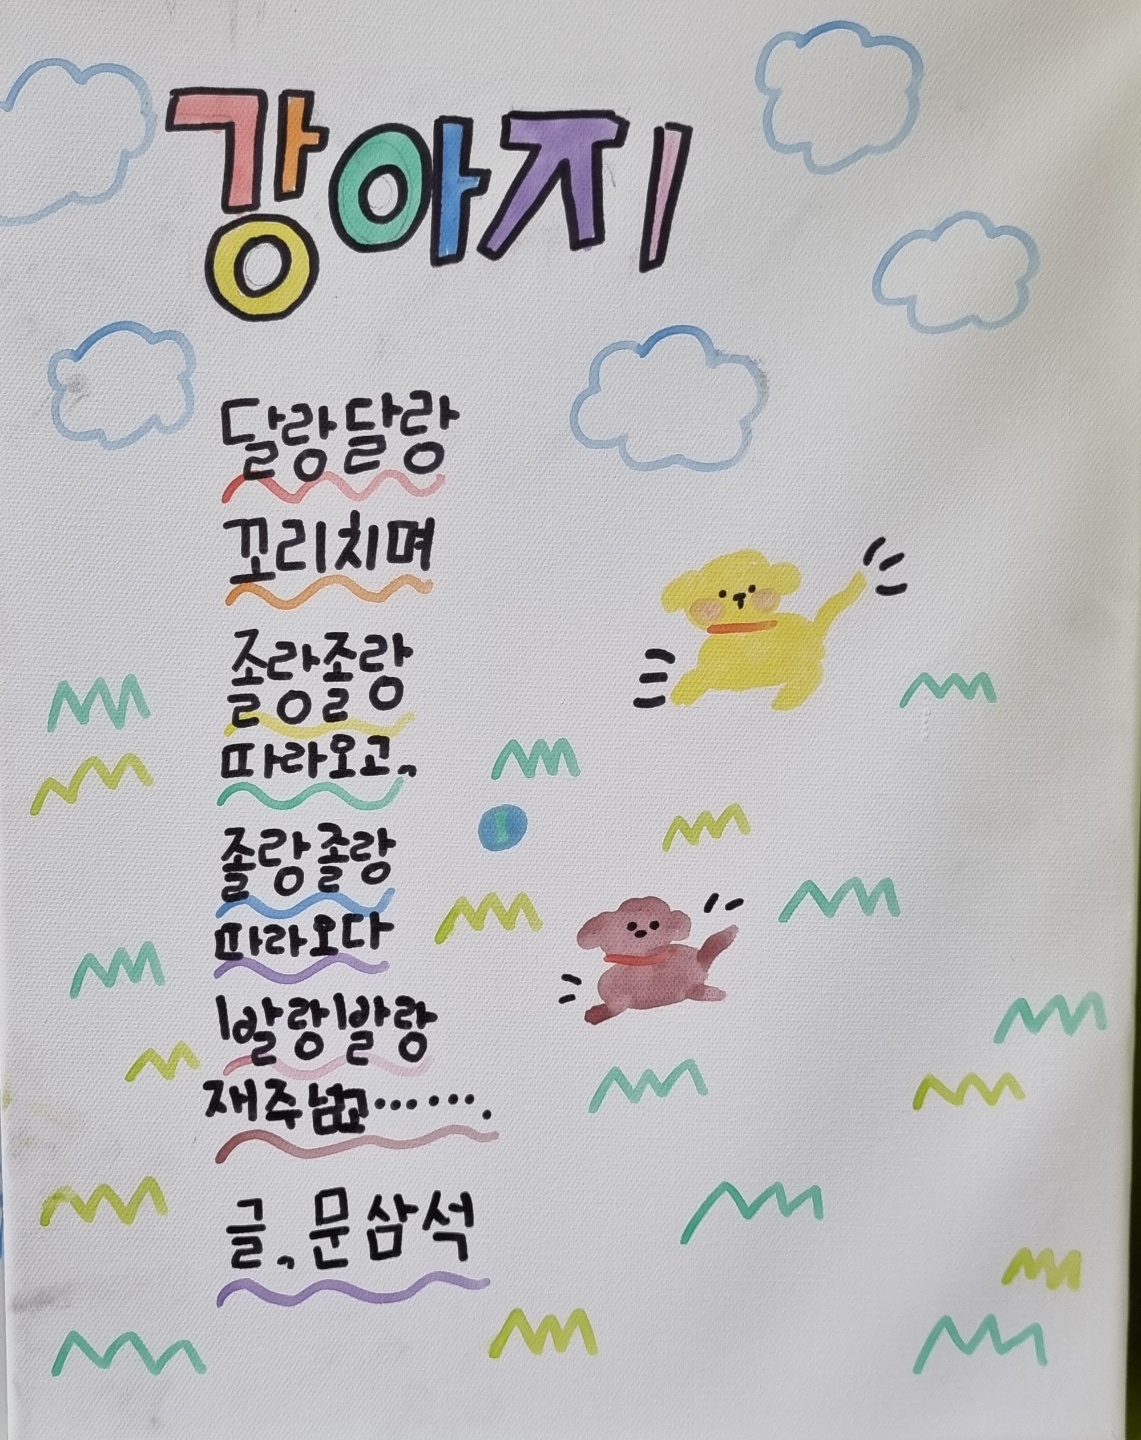 강아지
달랑달랑
꼬리치며
졸랑졸랑
따라오고,
졸랑졸랑
따라오다
발랑발랑
재주넘고…….
글, 문삼석